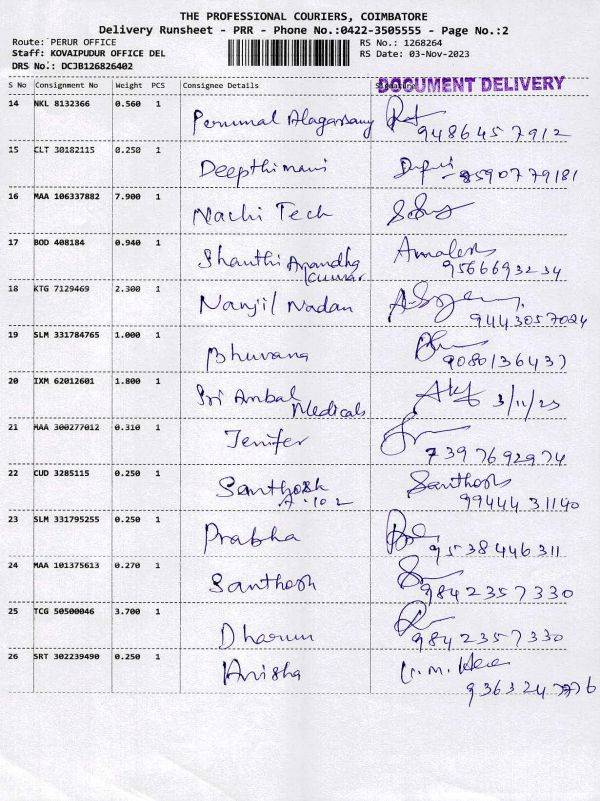 THE PROFESSIONAL COURIERS, COIMBATORE
Delivery Runsheet - PRR - Phone No.:0422-3505555 - Page No.:2
Route: PERUR OFFICE RS No.: 1268264
Staff: KOVAIPUDUR OFFICE DEL RS Date: 03-Nov-2023
DRS No.: DCJB126826402
DOCUMENT DELIVERY
S No Consignment No Weight PCS Consignee Details
14 NKL 8132366 0.560 1 Perumal Alagarsamy
9486457912
15 CLT 30182115 0.250 1 Deepthimani
8590779181
16 MAA 106337882 7.900 1 Nachi Tech
17 BOD 408184 0.940 1 Shanthi Anandha
Kumar
9566693234
18 KTG 7129469 2.300 1 Nanjil Nadan
9443057024
19 SLM 331784765 1.000 1 Bhuvana
9080136437
20 IXM 62012601 1.800 1 Sri Ambal
Medicals 3/11/23
21 MAA 300277012 0.310 1 Jenifer
7397692974
22 CUD 3285115 0.250 1 Santhosh Santhosh
A-102 9944431140
23 SLM 331795255 0.250 1 Prabha
9538446311
24 MAA 101375613 0.270 1 Santhosh
9842357330
25 TCG 50500046 3.700 1 Dharun
9842357330
26 SRT 302239490 0.250 1 Anisha
9363247776